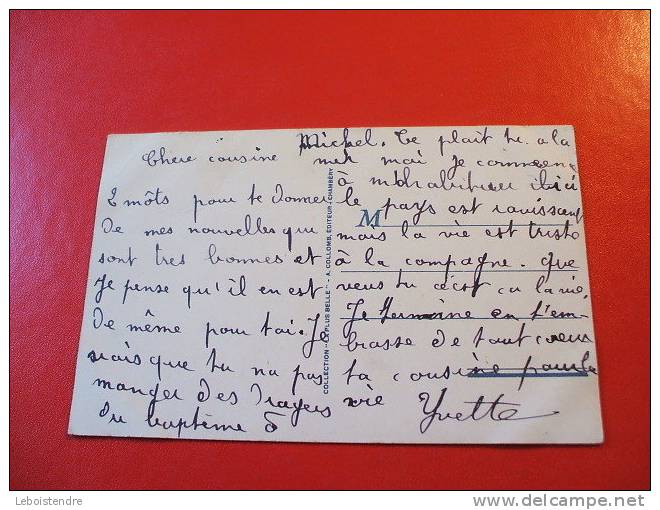 Chere cousine
2 môts pour te donner
de mes nouvelles qui
sont tres bonnes et
je pense qu'il en est
de même pour toi. Je
que tu na pas
manger des dragers
du baptême ô
Michel. Te plait tu a la
mer moi je commenc
à ici
le pays est ravissant
mais la vie est triste
à la compagne. que
veus tu cecst ca la vie.
Je termine en t'em
brasse de tout coeur
ta cousine pour la
vie Yvette
M
COLLECTION "LA PLUS BELLE" - A. COLLOMB, ÉDITEUR - CHAMBÉRY
Leboistendre
www.delcampe.net